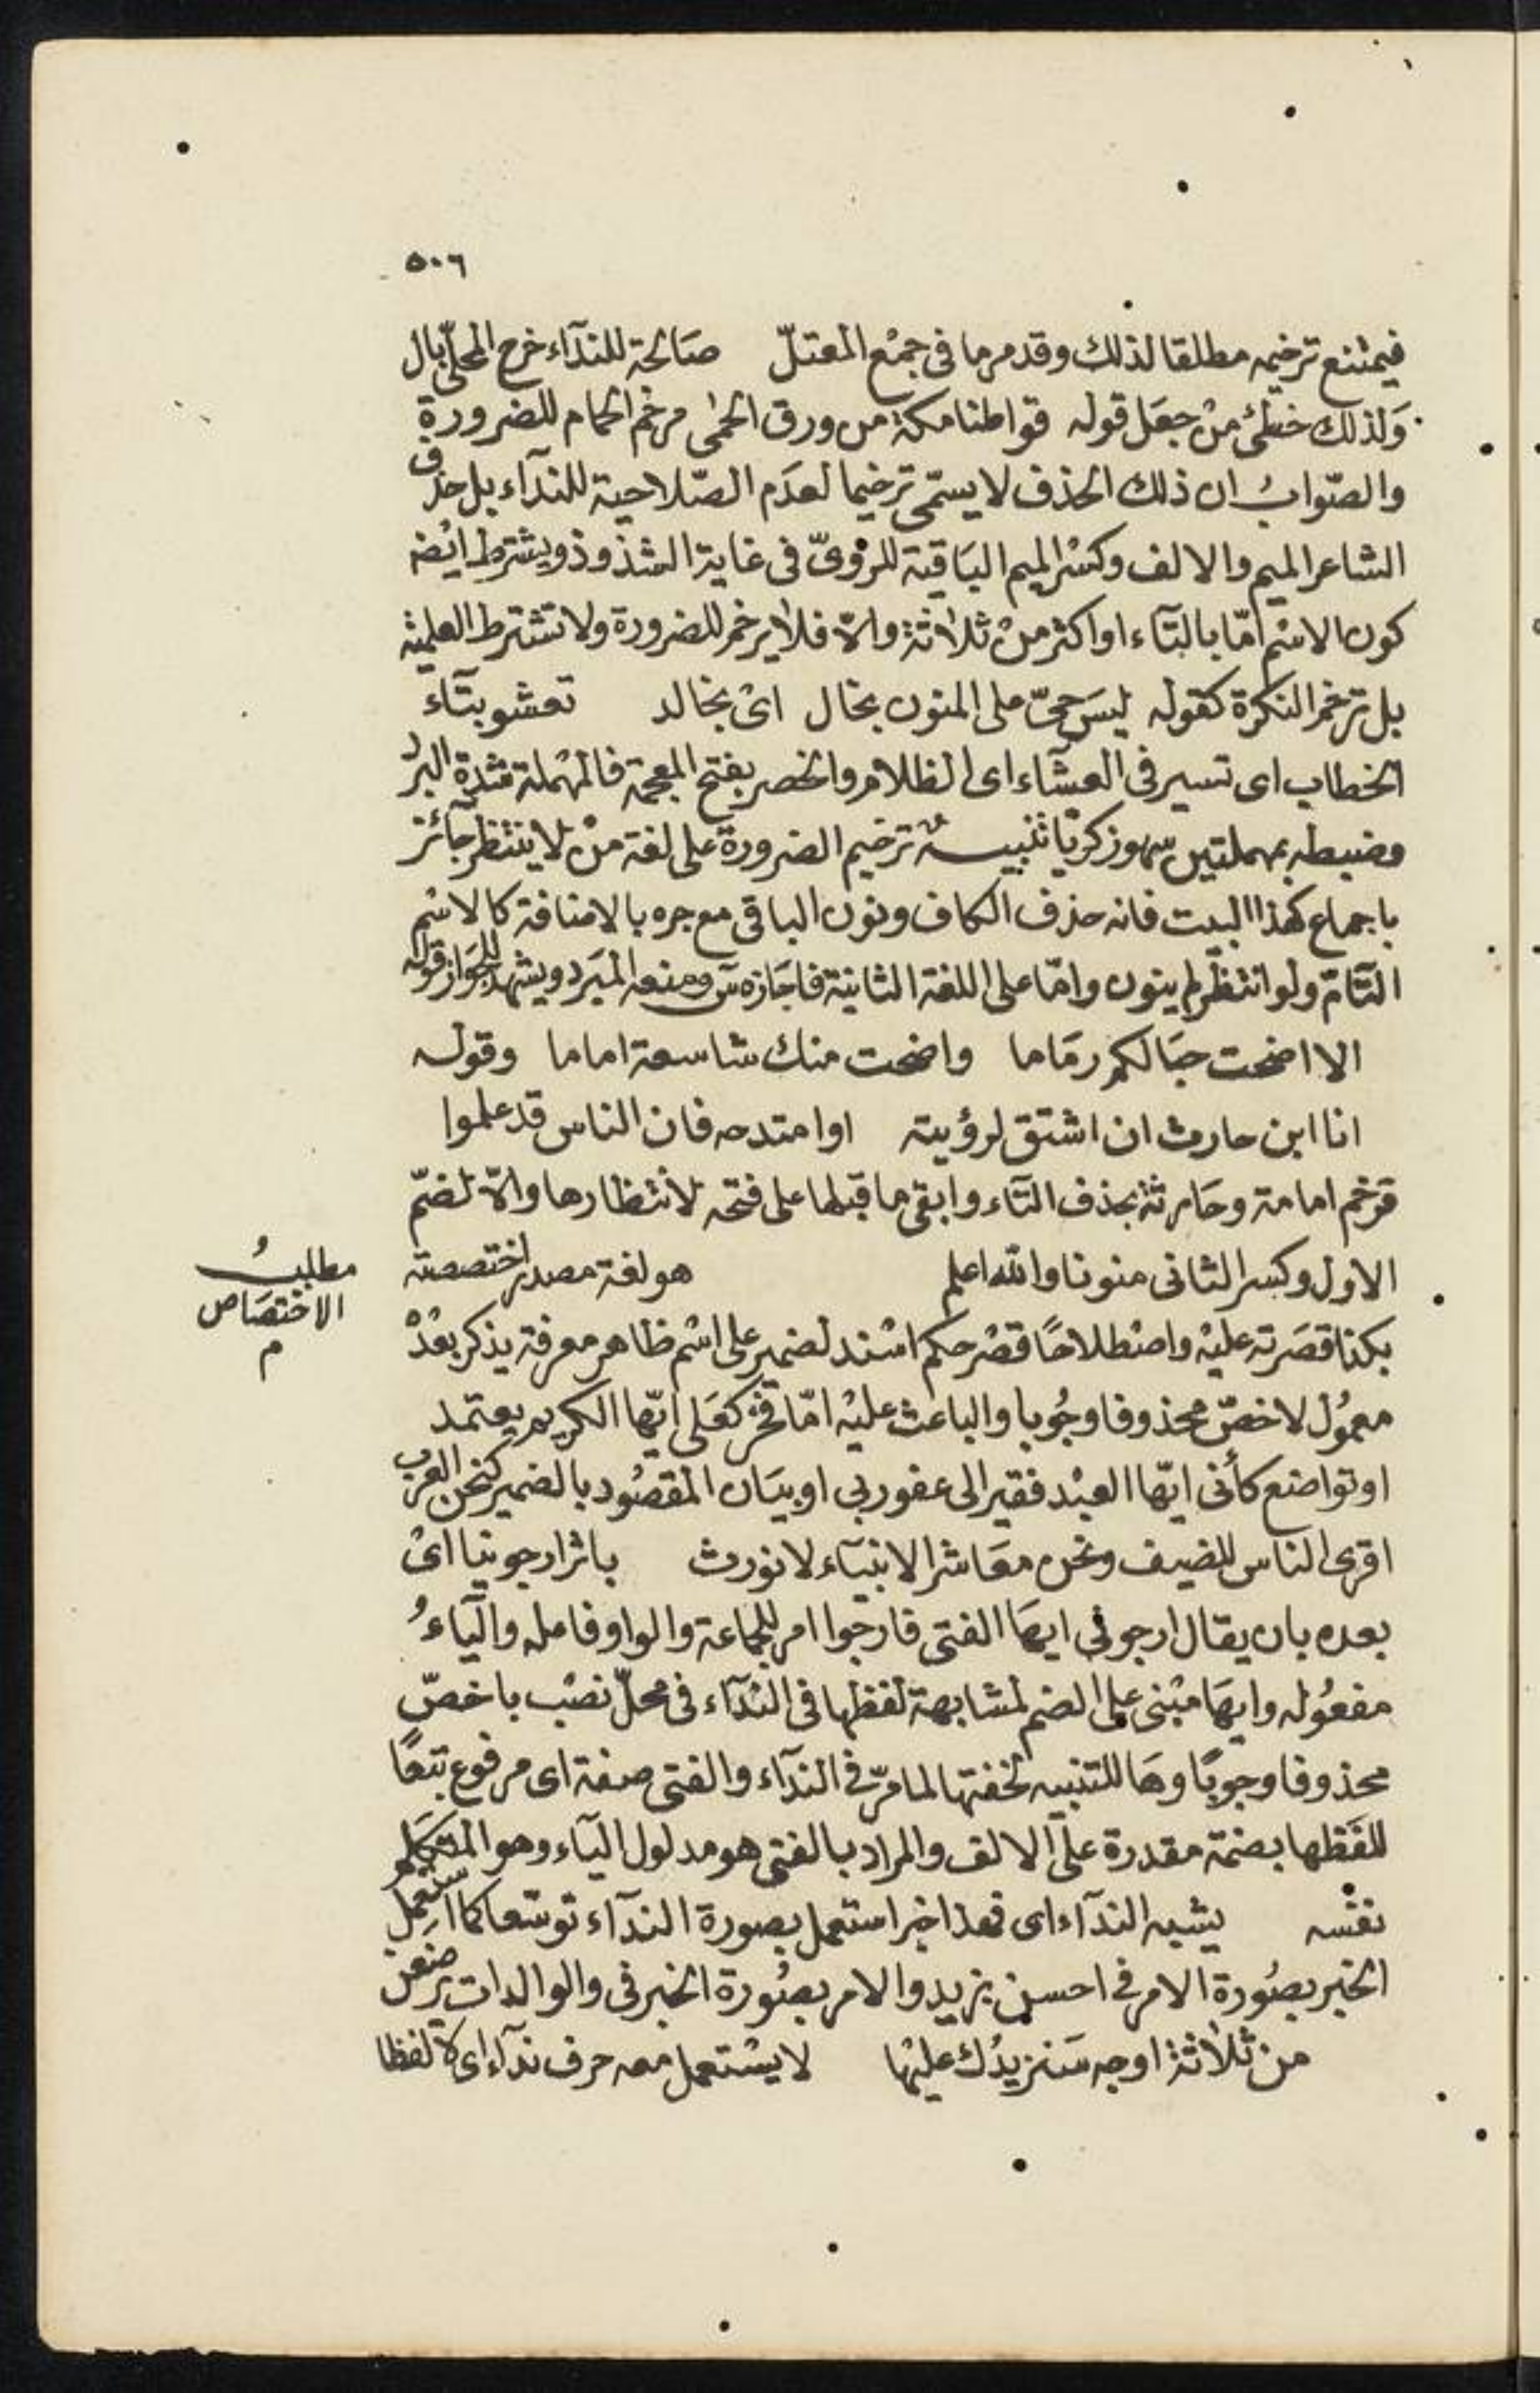 ٥٠٦
فيمتنع ترخيمه مطلقا لذلك وقد مر ما فى جمع المعتلّ صَالحة للندآء خرج المحلّى بال
وَلذلك خطئ منْ جعَل قوله قواطنا مكة من ورق الحمى مرخم الحمام للضرورة
والصّوابُ ان ذلك الحذف لا يسمّى ترخيما لعدَم الصّلاحية للندآء بل حذف
الشاعر الميم والالف وكسْر الميم البَاقية للروىّ فى غاية الشذوذ ويشترط ايْضا
كون الاسْم امّا بالتآء او اكثر منْ ثلاثة والاّ فلا يرخم للضرورة ولا تشترط العلمية
بل ترخم النكرة كقوله ليسَ حىّ على المنون بخال اىْ بخالد تعشو بتآء
الخطاب اى تسير فى العشآء اى الظلام والخصر بفتح المعجمة فالمهْملة شدة البرد
وضبطه بمهملتين سهو زكريّا تنبيهٌ ترخيم الضرورة على لغة منْ لا ينتظر جآئز
باجماع كهذا البيت فانه حذف الكاف ونون الباقى مع جره بالاضافة كالاسْم
التآمّ ولو انتظر لم ينون وامّا على اللغة الثانية فاجَازه س ومنعه المبَرد ويشهد للجوَاز قوله
الا اضحت حبَالكم رمَاما واضحت منك شاسعة اماما وقوله
انا ابن حارث ان اشتق لرؤيته او امتدحه فان الناس قد علموا
فرخم امامة وحَارثة بحذف التآء وابقى ما قبلها على فتحه لانتظارها والاّ لضمّ
الاول وكسر الثانى منونا والله اعلم هو لغة مصدر اختصصته
مطلبُ
الاختصَاص
م
بكذا قصَرته عليْه واصْطلاحًا قصْر حكم اسْند لضمير على اسْم ظاهر معرفة يذكر بعْدهْ
معمُول لاخصّ محذوفا وجُوبا والباعث عليْه امّا فخر كعَلى ايّها الكريم يعتمد
او تواضع كأنى ايّها العبْد فقير الى عفو ربى او بيَان المقصُود بالضمير كنحن العرب
اقرى الناس للضيف ونحن معَاشر الانبيَاء لا نورث باثر ارجونيا اىْ
بعده بان يقال ارجونى ايهَا الفتى فارجوا امر للجماعة والواو فاعله واليآءُ
مفعُوله وايهَا مبْنى على الضم لمشابهة لفظها فى الندآء فى محلّ نصْب باخصّ
محذوفا وجوبًا وهَا للتنبيه لخفتها لما مرّ فى الندآء والفتى صفة اى مرفوع تبَعًا
للفَظها بضمة مقدرة على الالف والمراد بالفتى هو مدلول اليآء وهو المتكلم
نفسْه يشبه الندآء اى فهذا خبر استعمل بصورة الندآء توسّعا كما استعمل
الخبر بصُورة الامر فى احسن بزيد والامر بصُورة الخبر فى والوالدات يرضعن
من ثلاثة اوجه سَنزيدُك عليْها لا يسْتعمل معه حرف ندآء اى لا لفظا